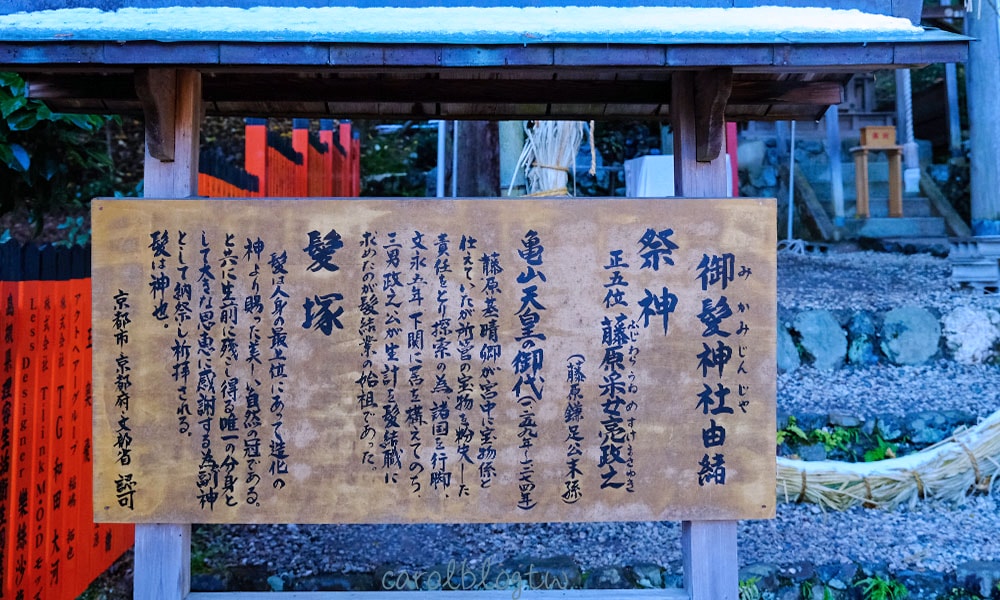 御髪神社由緒
みかみじんじゃ
祭神
正五位 藤原采女亮政之
ふじわらうねめのすけまさゆき
(藤原鎌足公末孫)
亀山天皇の御代(一二五九年〜一二七四年)
藤原基晴卿が宮中に宝物係と
仕えていたが所管の宝物を紛失した
責任をとり探索の為、諸国を行脚、
文永五年下関に居を構えてのち、
三男政之公が生計を髪結職に
求めたのが髪結業の始祖であった。
髪塚
髪は人身の最上位にあって造化の
神より賜った美しい自然の冠である。
と共に生前に残し得る唯一の分身と
して大きな思恵に感謝する為副神
として納祭し祈拝される。
髪は神也。
京都市・京都府・文部省 認可
アクトヘアーグループ
株式会社 TiG 和田
Less Designer
carolblog.tw